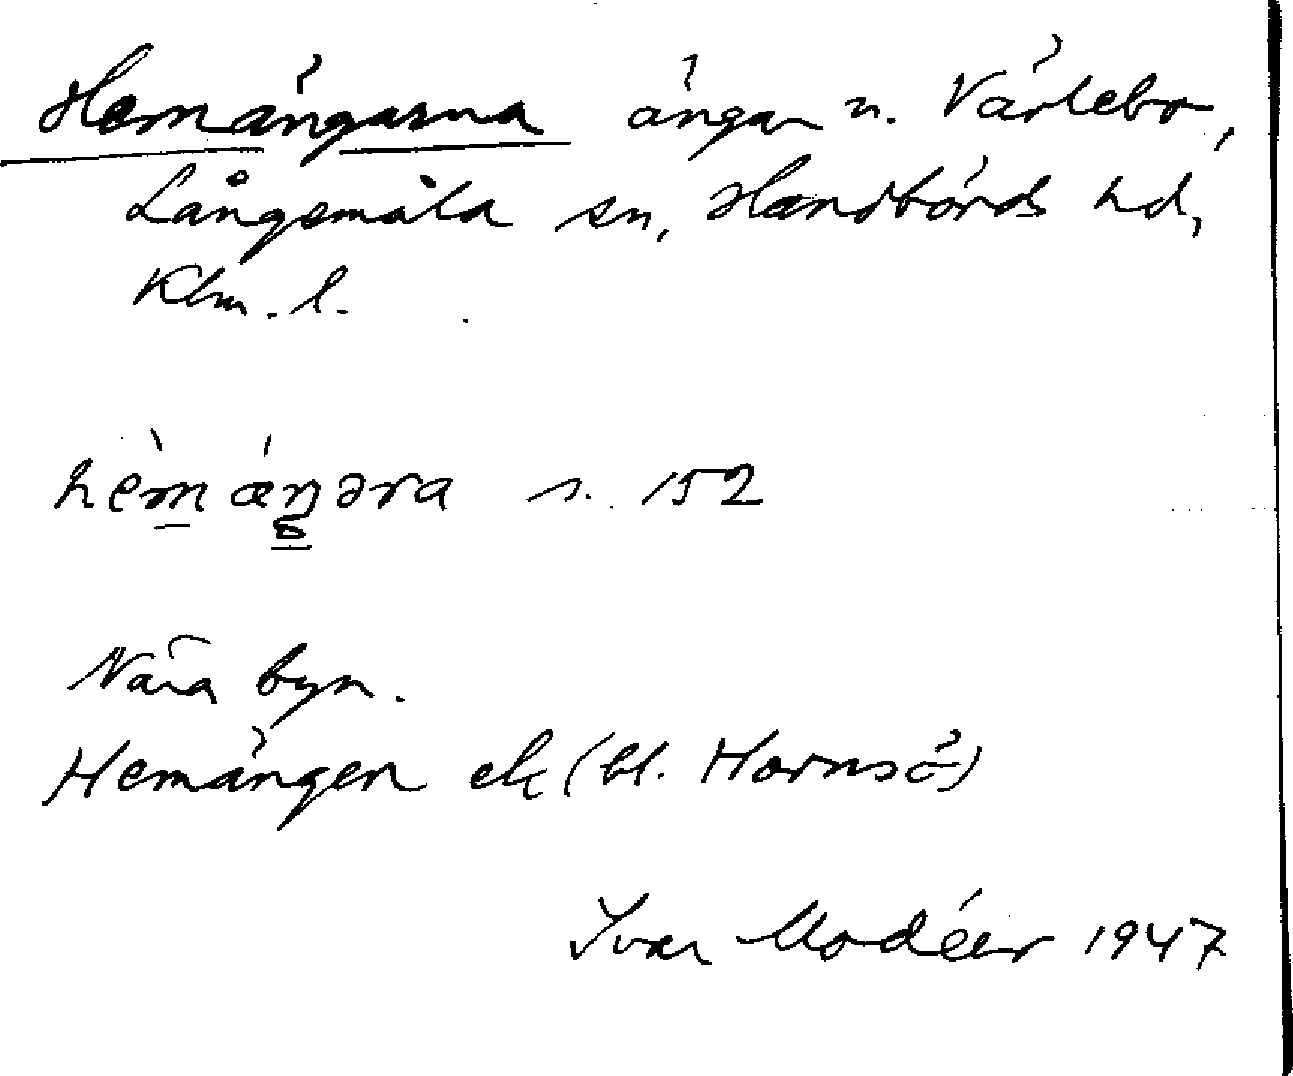 Hemängarna ängar n. Värlebo,
Långemåla sn, Handbörds hd,
Klm. l.
hèmæ̀ŋəra s. 152
Nära byn.
Hemängen ek (bl. Hornsö)
Ivar Modéer 1947